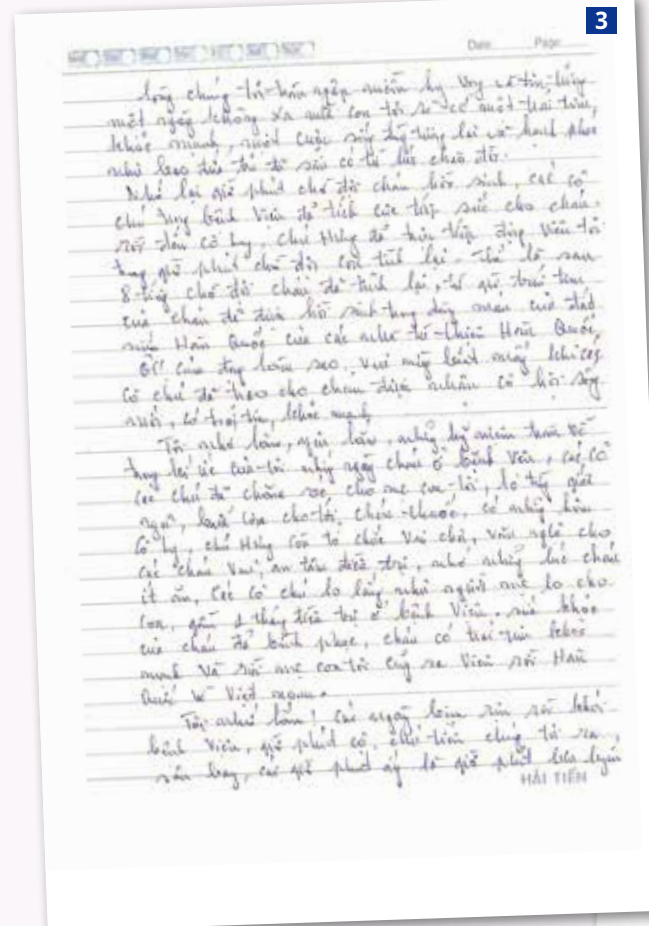 3
Date: Page:
lòng chúng tôi tràn ngập niềm hy vọng và tin tưởng
một ngày không xa nữa con tôi sẽ có một trái tim,
khỏe mạnh, một cuộc sống lại và hạnh phúc
như bao đứa trẻ đã sẵn có từ lúc chào đời.
Nhớ lại giờ phút chờ đợi cháu hồi sinh, các cô
chú trong bệnh viện đã tích cực tiếp sức cho cháu.
rồi đến cô hy, chú Hưng đã động viên tôi
trong giờ phút chờ đợi con tỉnh lại. Thế là sau
8 tiếng chờ đợi cháu đã tỉnh lại, từ giờ trái tim
của cháu đã được hồi sinh trong dòng máu của đất
nước Hàn Quốc của các nhà từ thiện Hàn Quốc
Ôi! làm sao, vui mừng biết mấy khi các
cô chú đã trao cho cháu được nhận cơ hội sống
mới, có trái tim, khỏe mạnh
Tôi nhớ lắm, nhớ lắm, những kỷ niệm tràn về
trong ký ức của tôi những ngày cháu ở bệnh viện, các cô
các chú đã chăm sóc cho mẹ con tôi, lo từng giấc
ngủ, bữa cơm cho tới thuốc, có những hôm
cô hy, chú Hưng còn tổ chức vui chơi, văn nghệ cho
các cháu vui, an tâm điều trị, nhớ những lúc cháu
ít ăn, các cô chú lo lắng như người mẹ lo cho
con, gần 1 tháng điều trị ở bệnh viện. sức khỏe
của cháu đã bình phục, cháu có trái tim khỏe
mạnh và rồi mẹ con tôi cũng ra viện rời Hàn
Quốc về Việt nam.
Tôi nhớ lắm! rời khỏi
bệnh viện, giờ phút cô, chú tiễn chúng tôi ra
sân bay, các giờ phút ấy là giờ phút lưu luyến
HẢI TIẾN